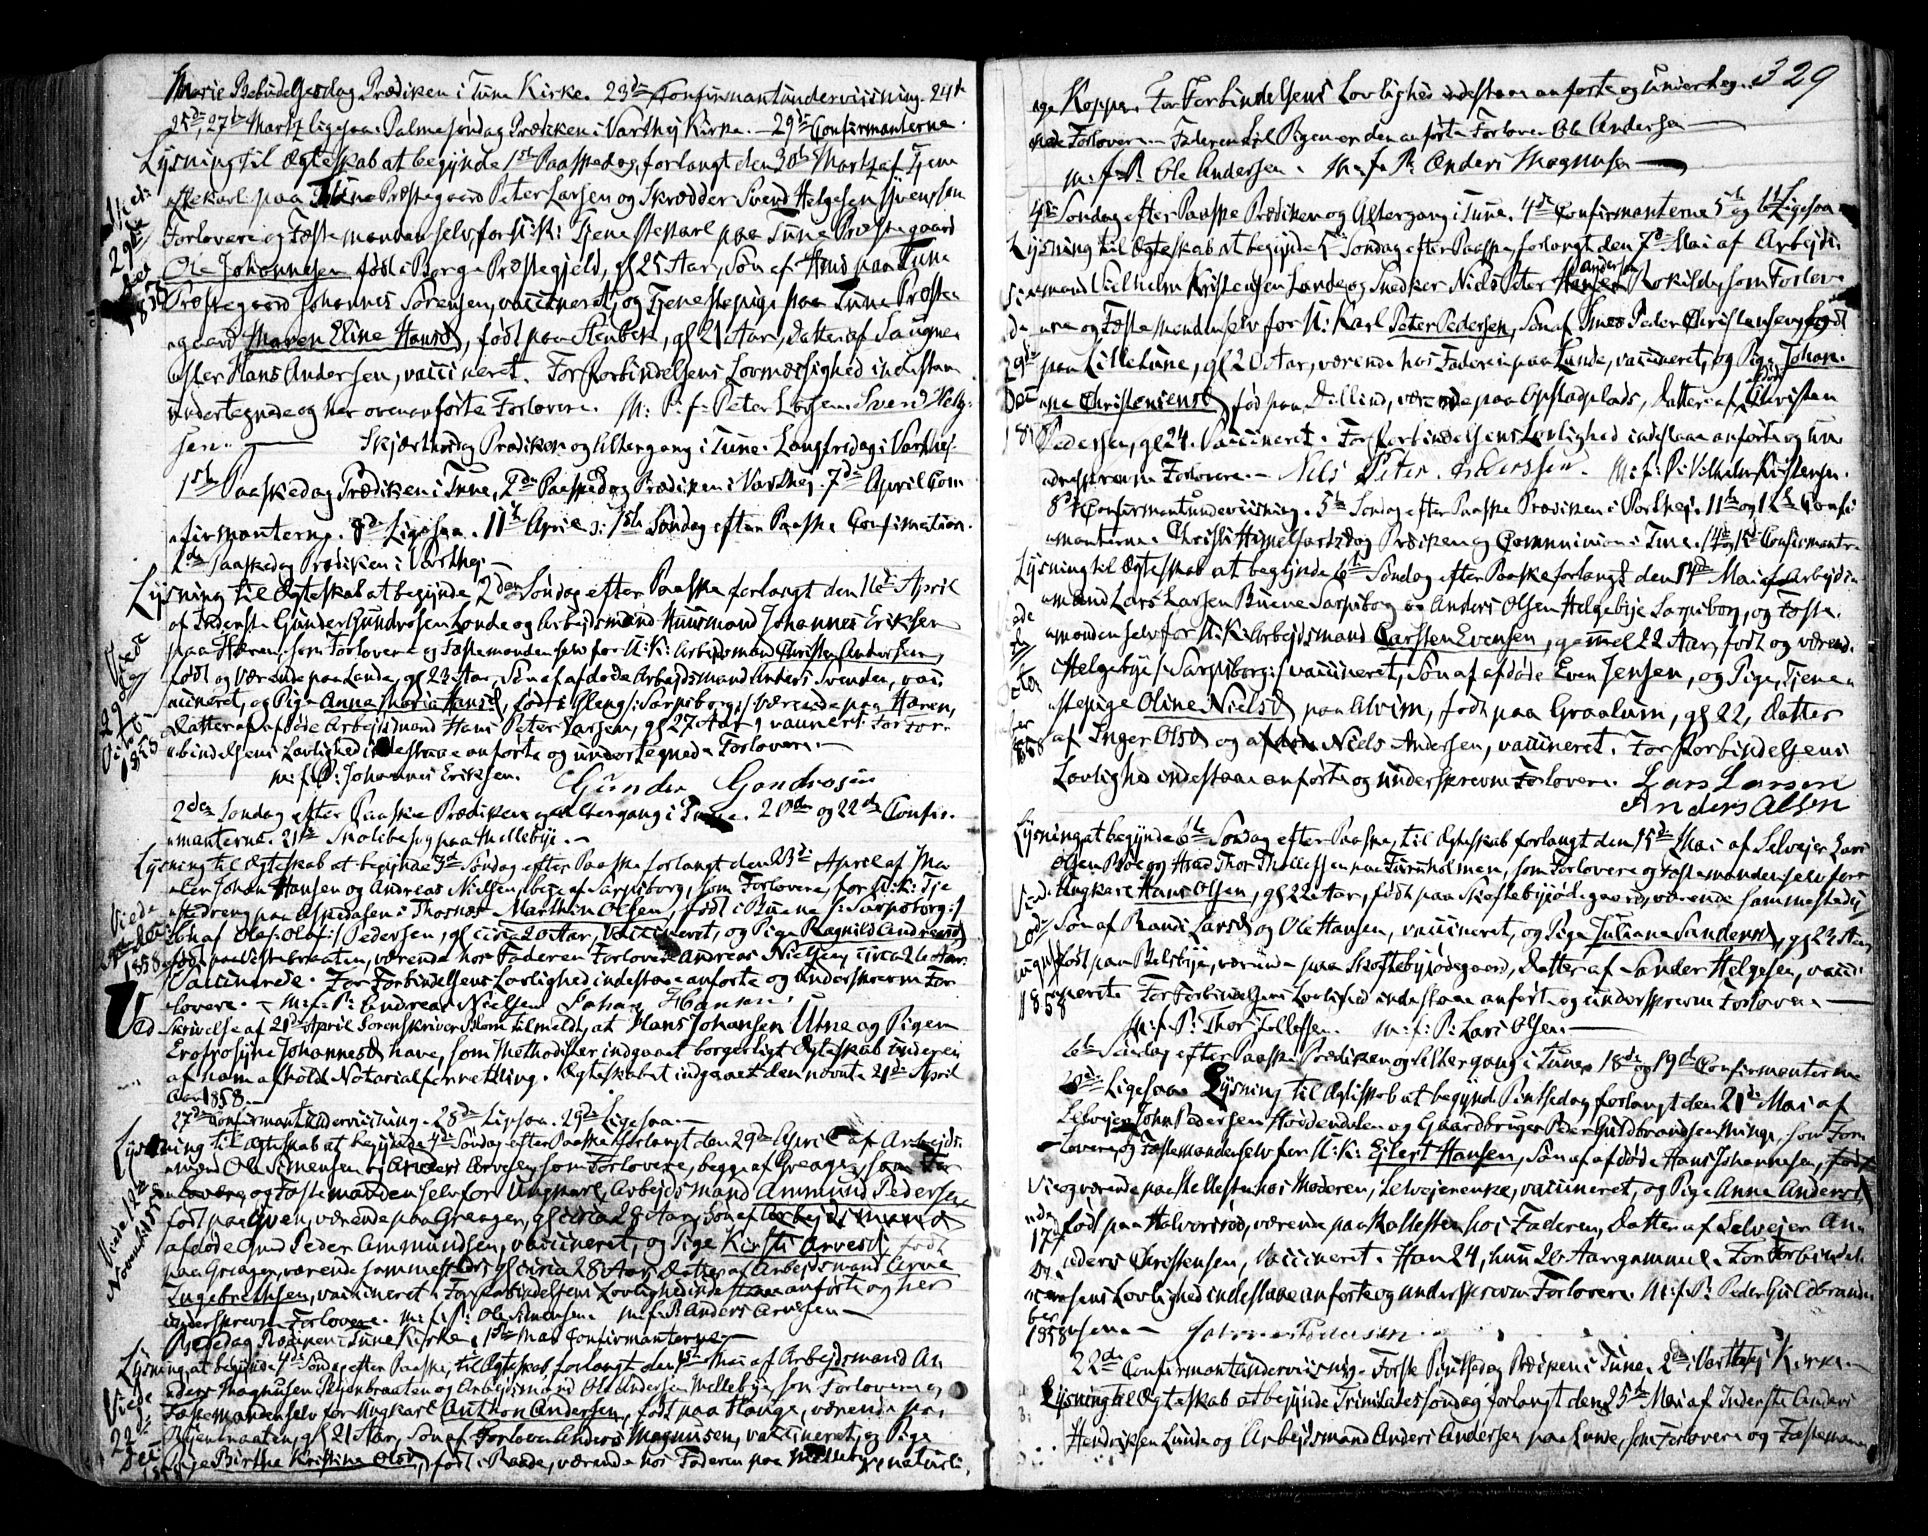 Mariæ Bebudelsesdag Prædiken i Tune Kirke. 23de Confirmantunderviisning. 24de
25de, 27de Martz ligesaa. Palmesøndag Prædiken i Varthej Kirke. 29de Confirmanterne.
Lysning til Ægteskab at begynde 1ste Paaskedag, forlangt den 30te Martz af Tjene
stekarl paa Tune Præstegaard Peter Larsen og Skrædder Svend Helgesen
Forlovere og Fæstemanden selv, for U: K: Tjenestekarl paa Tune Præstegaard
Ole Johannesen, født i Borge Præstegjeld, gl 25 Aar, Søn af paa Tune
Præstegaard Johannes Sørensen, vaccineret, og Tjenestepige paa Tune Præste
gaard Maren Eline Hansd, født paa Stenbek, gl 21 Aar, Datter af Saugme
ster Hans Andersen, vaccineret. For Forbindelsens Lovmæssighed indestaae
undertegnede og her ovenanførte Forlovere. M: f: P: Peter Larsen Svend Helge
sen. Skjærtorsdag Prædiken og Altergang i Tune. Langfredag i Varthej.
1ste Paaskedag Prædiken i Tune, 2den Paaskedag Prædiken i Varthej. 7de April Con
firmanterne. 8de Ligesaa. 11te April 1ste Søndag efter Paaske Confirmation.
2den Paaskedag Prædiken i Varthej.
Lysning til Ægteskab at begynde 2den Søndag efter Paaske forlangt den 16de April
af Inderste Gunder Gundrosen Lande og Arbejdsmand Huusmand Johannes Eriksen
paa Hæren, som Forlovere og Fæstemanden selv for U: K: Arbejdsmand Christen Andersen,
født og værende paa Lande, gl 23 Aar, Søn af afdøde Arbejdsmand Anders Svendsen, vac
cineret, og Pige Anne Maria Hansd, født i Gleng /: Sarpsborg :/ værende paa Hæren,
Datter af afdøde Arbejdsmand Hans Peter Larsen, gl 27 Aar, vaccinert. For For
bindelsens Lovlighed indestaae anførte og undertegnede Forlovere.
M: f: P: Johannes Eriksen. Gunder Gondrosin
2den Søndag efter Paaske Prædiken og Altergang i Tune. 20de og 22de Confir
manterne. 21de Skolebesøg paa Mellebye.
Lysning til Ægteskab at begynde 3die Søndag efter Paaske forlangt den 23de April af Ma
ler Johan Hansen og Andreas Nielsen, begge af Sarpsborg, som Forlovere, for U: K: Tje
nestedreng paa Aspedasen i Thorsnes Marthin Olsen, født i Buene /: Sarpsborg :/
Søn af Olaf: Olaf :/ Pedersen, gl circa 20 Aar, vaccineret, og Pige Ragnild Andreasd
født paa Vestenbraaten, værende hos Faderen Forlovere Andreas Nielsen, circa 26 Aar.
Vaccinerede. For Forbindelsens Lovlighed indestaae anførte og underskrevne For
lovere. M: f: P: Andreas Nielsen Johan Hansen.
Ved Skrivelse af 21de April Sorenskriver Blom tilmeldt, at Hans Johansen Utne og Pigen
Erofrosyne Johannesd have, som Methodister indgaaet borgerligt Ægteskab under en
af ham afholdt Notarialforretning. Ægteskabet indgaaet den nævnte 21de April
Aar 1858.
27de Confirmantunderviisning. 28de Ligesaa. 29de Ligesaa.
Lysning til Ægteskab at begynde 4de Søndag efter Paaske forlangt den 29de April af Arbejds
mand Ole Simensen og Anders Arvesen, som Forlovere, begge af Greager, som For
lovere og Fæstemanden selv for Ungkarl, Arbejdsmand Ammund Pedersen
født paa Qven, værende paa Greager, gl circa 28 Aar, Søn af Arbejdsmand
afdøde Gmd Peder Ammundsen, vaccineret, og Pige Kirsti Arvesd, født
paa Greager, værende sammesteds, gl circa 28 Aar, Datter af Arbejdsmand Arve
Engebrethsen, vaccineret. For Forbindelsens Lovlighed indestaae anførte og her
underskrevne Forlovere. M: f: P: Ole Simensen M: f: P: Anders Arvesen
Bededag Prædiken i Tune Kirke. 1ste Mai Confirmanterne.
Lysning, at begynde 4de Søndag efter Paaske, til Ægteskab, forlangt den 1ste Mai af Arbejdsmand An
ders Magnusen Stjenbraaten og Arbejdsmand Ole Andersen Mellebye, som Forlovere og
Fæstemanden selv for Ungkarl Anthon Andersen, født paa Hauge, værende paa
Stjenbraaten, gl 21 Aar, Søn af Forlover Anders Magnusen, vaccineret, og Pige
Birthe Kristine Olsd, født i Raade, værende hos Faderen paa Mellebye, naturli
Viet
29de
1858
29de
Octb
1858
Viede
1858
Viede 12te
November 1858
Viede
22de
1858
329
ge Kopper. For Forbindelsens Lovlighed indestaae anførte og underteg
nede Forlovere. Faderen til Pigen er den anførte Forlover Ole Andersen
M: f: P: Ole Andersen. M: f: P: Anders Magnusen
4de Søndag efter Paaske Prædiken og Altergang i Tune. 4de Confirmanterne 5te og 6te Ligesaa.
Lysning til Ægteskab at begynde 5te Søndag efter Paaske, forlangt den 7de Mai af Arbejds
mand Vilhelm Kristensen Lande og Snedker Niels Peter Andersen Rokilde, som Forlov
ere og Fæstemanden selv for U: Karl Peter Pedersen, Søn af Peder Christensen, født
paa Lille Tune, gl 20 Aar, værende hos Faderen paa Lunde, vaccineret, og Pige Johan
ne Christensensd, fød paa Dillind, værende paa Opstadplads, Datter af afdøde Christen
Pedersen, gl 24. Vaccineret. For Forbindelsens Lovlighed indestaae anførte og un
derskrevne Forlovere. Nils Peter Anderssen. M: f: P: Vilhelm Kristensen.
8de Confirmantunderviisning. 5te Søndag efter Paaske Prædiken i Varthej. 11te og 12te Confir
manterne. Christi Himmelfartsdag Prædiken og Communion i Tune. 14de og 15de Confirmantr.
Lysning til Ægteskab at begynde 6te Søndag efter Paaske forlangt den 14de Mai af Arbejds
mand Lars Larsen Buene Sarpsborg og Anders Olsen Helgebye Sarpsborg, og Fæste
manden selv for U: K: Arbejdsmand Carsten Evensen, gammel 22 Aar, født og værend.
i Helgebye /: Sarpsborg :/ vaccineret, Søn af afdøde Even Jensen, og Pige, Tjene
stepige Oline Nielsd paa Alvim, født paa Graalum, gl 22, Datter
af Inger Olsd og Niels Andersen, vaccineret. For Forbindelsens
Lovlighed indestaae anførte og underskrevne Forlovere. Lars Larsen
Anders Olsen
Lysning at begynde 6te Søndag efter Paaske, til Ægteskab forlangt den 15de Mai af Selvejer Lars
Olsen Bøe og Thor Thellefsen paa Tuneholmen, som Forlovere og Fæstemanden selv for
Ungkarl Hans Olsen, gl 22 Aar, født paa Skoftebyeødegaard, værende sammesteds,
Søn af Randi Larsd og Ole Hansen, vaccineret, og Pige Juliane Sandersd, gl 23 Aar,
født paa Belsbye, værende paa Skoftebyeødegaard, Datter af Sander Helgesen, vacci
neret. For Forbindelsens Lovlighed indestaae anførte og underskrevne Forlovere
M: f: P: Thor Tellefsen. M: f: P: Lars Olsen.
6te Søndag efter Paaske Prædiken og Altergang i Tune. 18de og 19de Confirmanterne
20de Ligesaa. Lysning til Ægteskab at begynde Pintsedag forlangt den 21de Mai af
Selvejer John Pedersen Høidendalen og Gaardbruger Peder Guldbrandsen Minge, som For
lovere, og Fæstemanden selv for U: K: Ejlert Hansen, Søn af afdøde Hans Johannesen, født
og værende paa Skallesten hos Moderen, Selvejerenke, vaccineret, og Pige Anne Andersd,
født paa Halvorsrød, værende paa Skallesten hos Faderen, Datter af Selvejer An
ders Christensen, vaccineret. Han 24, hun 20 Aar gammel. For Forbindel
sens Lovlighed indestaae anførte og underskrevne Forlovere. M: f: P: Peder Guldbrand
sen. Johannes Pedersen.
22de Confirmantunderviisning. Første Pintsedag Prædiken i Tune. 2den i Varthej Kirke.
Lysning til Ægteskab at begynde Trinitatissøndag forlangt den 25de Mai af Inderste Anders
Hendriksen Lunde og Arbejdsmand Anders Andersen paa Lunde, som Forlovere og Fæsteman
29de
1858
20de
1858
17de
1858